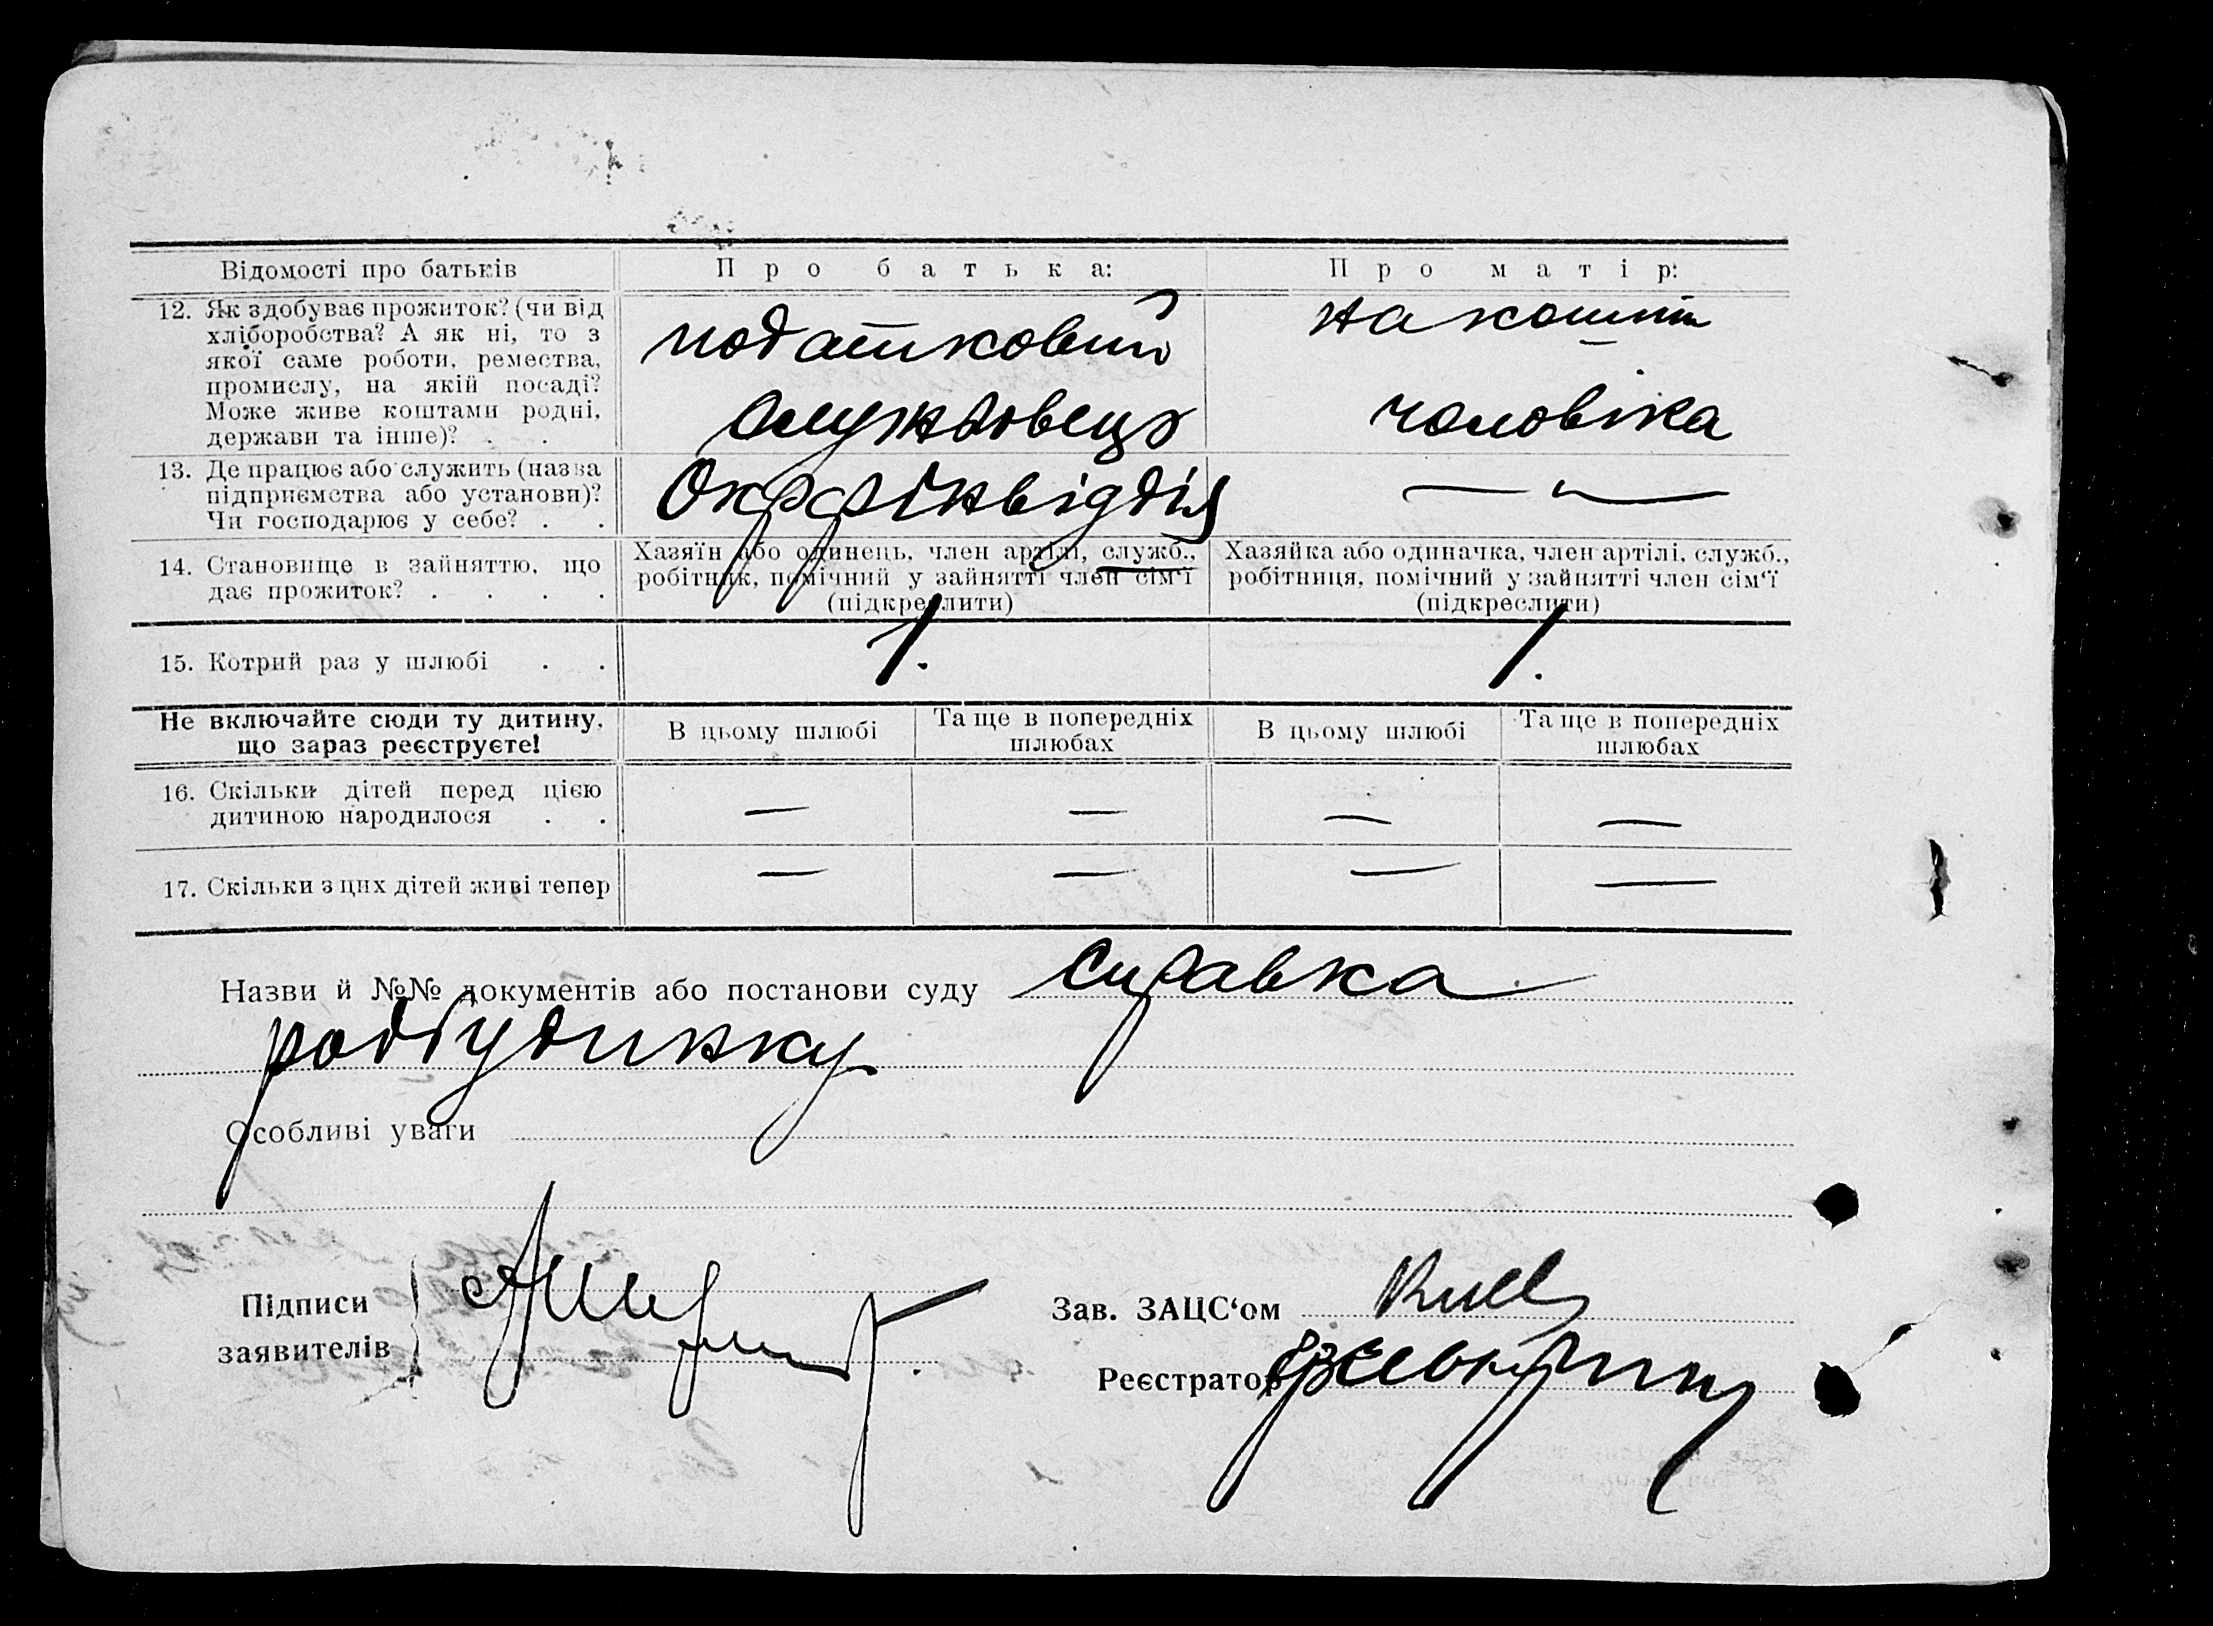 Відомості про батьків Про батька: Про матір:
12. Як здобуває прожиток? (чи від
хліборобства? А як ні, то з
якої саме роботи, ремества,
промислу, на якій посаді?
Може живе коштами родні,
держави та інше)? . .
податковий
службовець
на кошти
чоловіка
13. Де працює або служить (назва
підприємства або установи)?
Чи господарює у себе? . .
Окрфінвідділ
— " —
14. Становище в зайняттю, що
дає прожиток? . . . .
Хазяїн або одинець, член артілі, служб.,
робітник, помічний у зайнятті член сім'ї
(підкреслити)
Хазяйка або одиначка, член артілі, служб.,
робітниця, помічний у зайнятті член сім'ї
(підкреслити)
15. Котрий раз у шлюбі . . 1. 1.
Не включайте сюди ту дитину,
що зараз реєструєте!
В цьому шлюбі
Та ще в попередніх
шлюбах
В цьому шлюбі
Та ще в попередніх
шлюбах
16. Скільки дітей перед цією
дитиною народилося . .
— — — —
17. Скільки з цих дітей живі тепер — — — —
Назви й №№ документів або постанови суду Справка
родбудинку
Особливі уваги
Підписи
заявителів
Зав. ЗАЦС'ом
Реєстратор